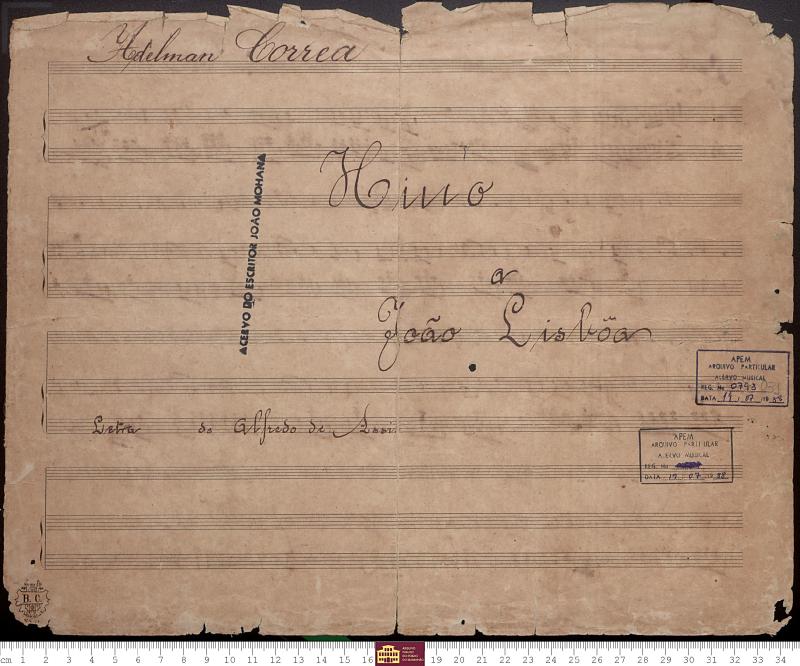 Adelman Corrêa
Hino
a
João Lisbôa
Letra do Alfredo de Assis
ACERVO DO ESCRITOR JOÃO MOHANA
APEM
ARQUIVO PARTICULAR
ACERVO MUSICAL
REG. No 0793
DATA 19 . 07 . 19 88
APEM
ARQUIVO PARTICULAR
ACERVO MUSICAL
REG. No
DATA 19 . 07 . 19 88
B. C.
cm 1 2 3 4 5 6 7 8 9 10 11 12 13 14 15 16 19 20 21 22 23 24 25 26 27 28 29 30 31 32 33 34